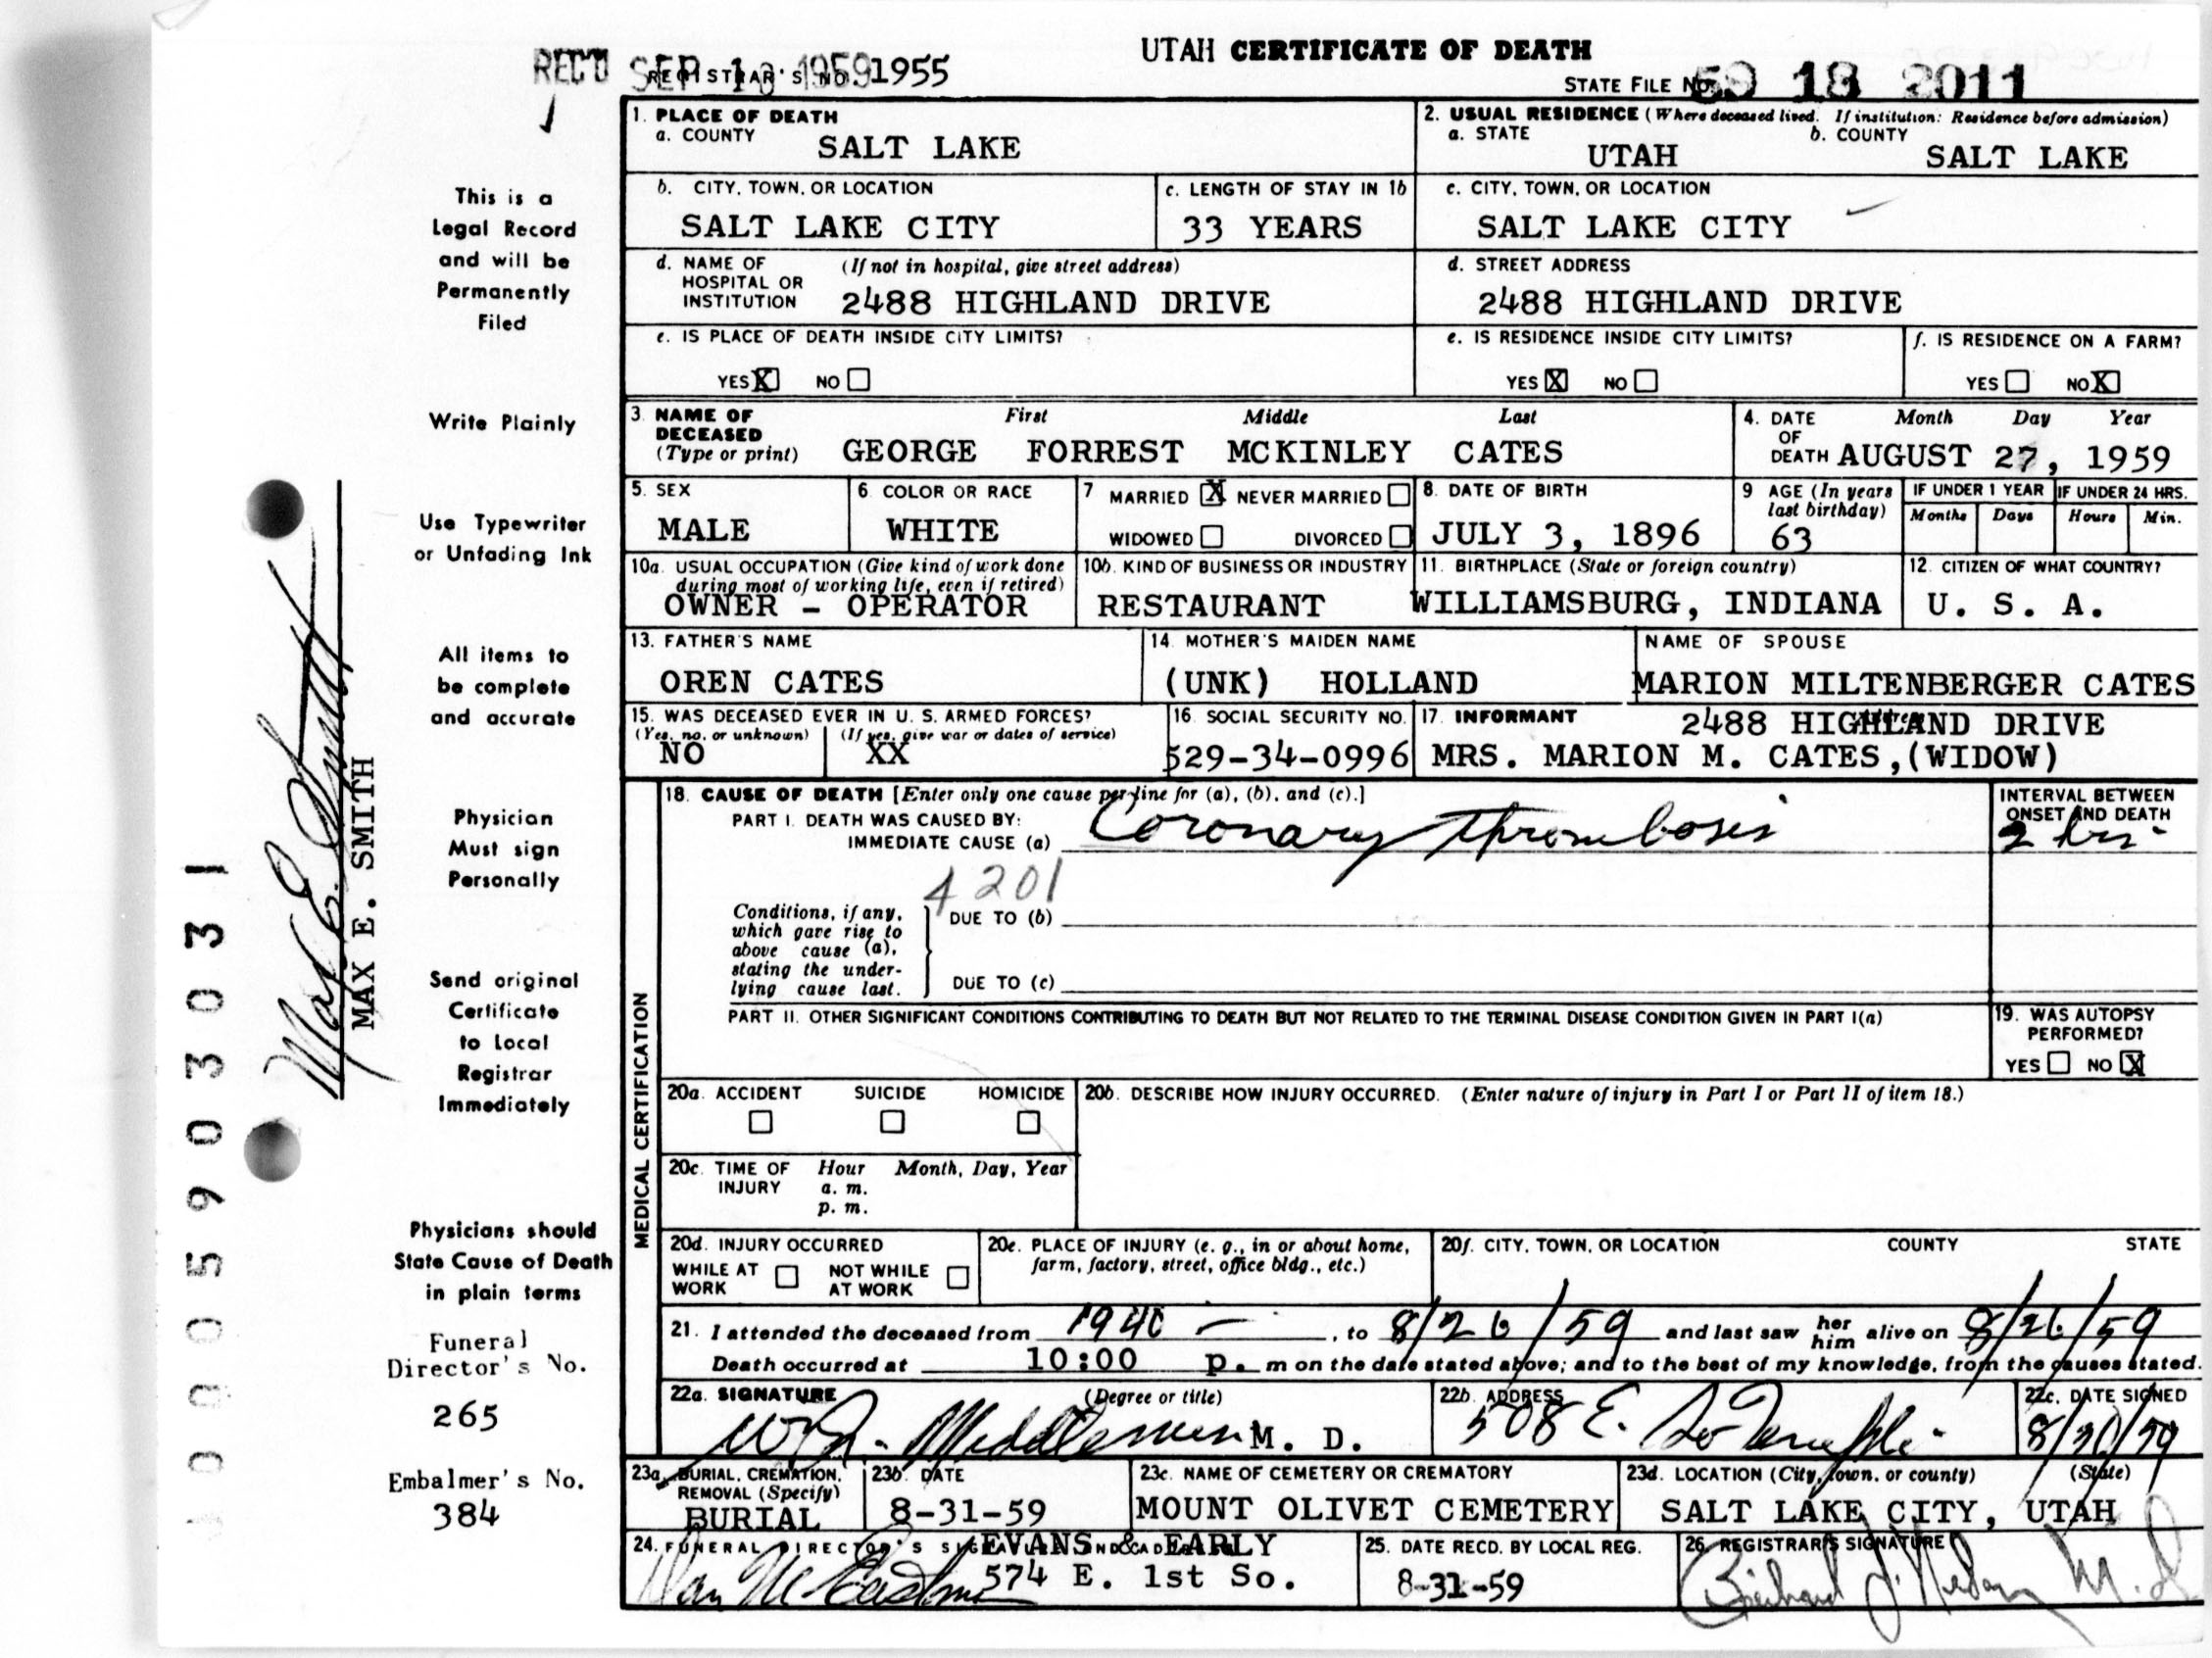 UTAH CERTIFICATE OF DEATH
REC'D SEP 1959
REGISTRAR'S NO. 1955
STATE FILE NO. 59 18 2011
1. PLACE OF DEATH
a. COUNTY
SALT LAKE
2. USUAL RESIDENCE (Where deceased lived. If institution: Residence before admission)
a. STATE b. COUNTY
UTAH SALT LAKE
b. CITY, TOWN, OR LOCATION
SALT LAKE CITY
c. LENGTH OF STAY IN 1b
33 YEARS
c. CITY, TOWN, OR LOCATION
SALT LAKE CITY
d. NAME OF HOSPITAL OR INSTITUTION (If not in hospital, give street address)
2488 HIGHLAND DRIVE
d. STREET ADDRESS
2488 HIGHLAND DRIVE
e. IS PLACE OF DEATH INSIDE CITY LIMITS?
YES X NO
e. IS RESIDENCE INSIDE CITY LIMITS?
YES X NO
f. IS RESIDENCE ON A FARM?
YES NO X
3. NAME OF DECEASED (Type or print)
First Middle Last
GEORGE FORREST MCKINLEY CATES
4. DATE OF DEATH Month Day Year
AUGUST 27, 1959
5. SEX
MALE
6. COLOR OR RACE
WHITE
7 MARRIED X NEVER MARRIED
WIDOWED DIVORCED
8. DATE OF BIRTH
JULY 3, 1896
9 AGE (In years last birthday)
63
IF UNDER 1 YEAR
Months Days
IF UNDER 24 HRS.
Hours Min.
10a. USUAL OCCUPATION (Give kind of work done during most of working life, even if retired)
OWNER - OPERATOR
10b. KIND OF BUSINESS OR INDUSTRY
RESTAURANT
11. BIRTHPLACE (State or foreign country)
WILLIAMSBURG, INDIANA
12. CITIZEN OF WHAT COUNTRY?
U. S. A.
13. FATHER'S NAME
OREN CATES
14. MOTHER'S MAIDEN NAME
(UNK) HOLLAND
NAME OF SPOUSE
MARION MILTENBERGER CATES
15. WAS DECEASED EVER IN U. S. ARMED FORCES?
(Yes, no, or unknown) (If yes, give war or dates of service)
NO XX
16. SOCIAL SECURITY NO.
529-34-0996
17. INFORMANT Address
2488 HIGHLAND DRIVE
MRS. MARION M. CATES,(WIDOW)
MEDICAL CERTIFICATION
18. CAUSE OF DEATH [Enter only one cause per line for (a), (b), and (c).]
PART I. DEATH WAS CAUSED BY:
IMMEDIATE CAUSE (a) Coronary thrombosis
INTERVAL BETWEEN ONSET AND DEATH
2 hrs.
4201
Conditions, if any, which gave rise to above cause (a), stating the underlying cause last.
DUE TO (b)
DUE TO (c)
PART II. OTHER SIGNIFICANT CONDITIONS CONTRIBUTING TO DEATH BUT NOT RELATED TO THE TERMINAL DISEASE CONDITION GIVEN IN PART I(a)
19. WAS AUTOPSY PERFORMED?
YES NO X
20a. ACCIDENT SUICIDE HOMICIDE
20b. DESCRIBE HOW INJURY OCCURRED. (Enter nature of injury in Part I or Part II of item 18.)
20c. TIME OF INJURY Hour Month, Day, Year
a. m.
p. m.
20d. INJURY OCCURRED
WHILE AT WORK NOT WHILE AT WORK
20e. PLACE OF INJURY (e. g., in or about home, farm, factory, street, office bldg., etc.)
20f. CITY, TOWN, OR LOCATION COUNTY STATE
21. I attended the deceased from 1940 - , to 8/26/59 and last saw her him alive on 8/26/59
Death occurred at 10:00 p. m on the date stated above; and to the best of my knowledge, from the causes stated.
22a. SIGNATURE (Degree or title)
Middleton M. D.
22b. ADDRESS
508 E. So Temple
22c. DATE SIGNED
8/30/59
23a. BURIAL, CREMATION, REMOVAL (Specify)
BURIAL
23b. DATE
8-31-59
23c. NAME OF CEMETERY OR CREMATORY
MOUNT OLIVET CEMETERY
23d. LOCATION (City, town, or county) (State)
SALT LAKE CITY, UTAH
24. FUNERAL DIRECTOR'S SIGNATURE AND ADDRESS
EVANS & EARLY
574 E. 1st So.
25. DATE RECD. BY LOCAL REG.
8-31-59
26. REGISTRAR'S SIGNATURE
M.D.
This is a
Legal Record
and will be
Permanently
Filed
Write Plainly
Use Typewriter
or Unfading Ink
All items to
be complete
and accurate
Physician
Must sign
Personally
Send original
Certificate
to Local
Registrar
Immediately
Physicians should
State Cause of Death
in plain terms
Funeral
Director's No.
265
Embalmer's No.
384
Max E. Smith
MAX E. SMITH